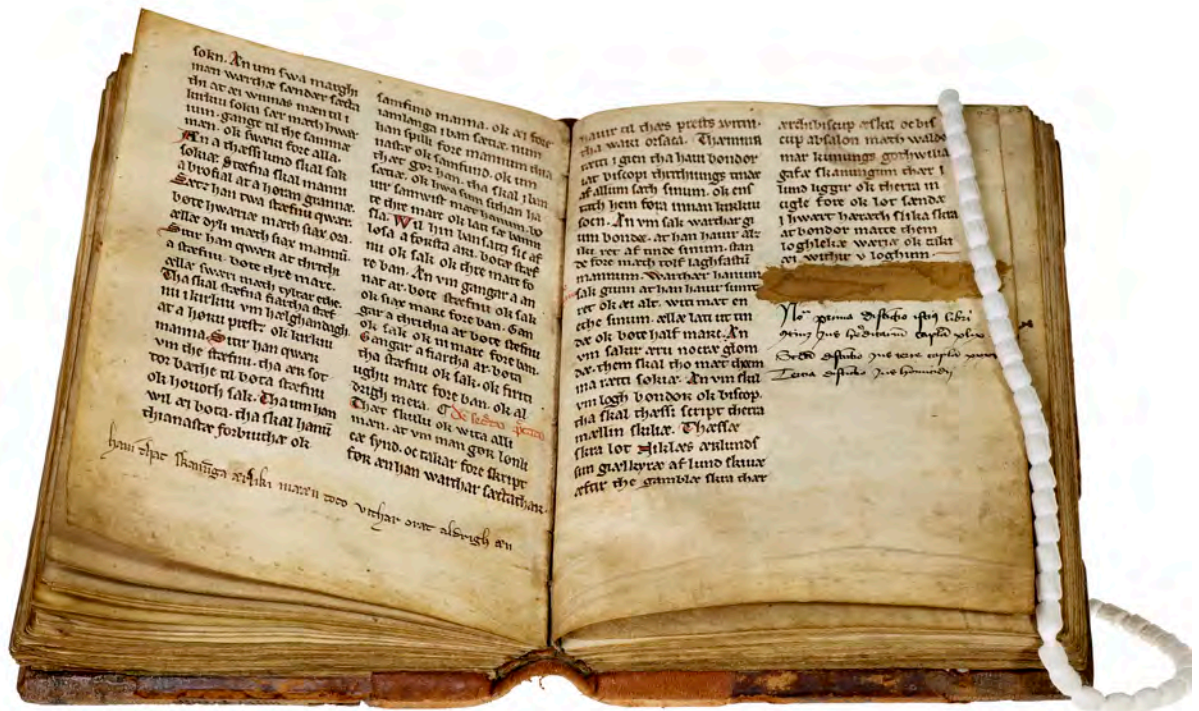 sokn. An um swa marghi
mæn warthæ sandær sæcta
thi at æi winnas mæn til i
kirkiu sokn sær mæth hwar
ium. gange til the sammæ
mæn. ok sweri fore alla.
An a thæssi lund skal sak
sokiæ. Stæfna skal manni
a brofial at a horan grannæ.
Sætær han twa stæfnu qwær.
bote hwariæ mæth siax ora.
ællæ dyli mæth siax mannū.
Sitir han qwær at thrithi
a stæfnu. bote thre marc.
ællæ sweri mæth tyltar ethe.
Tha skal stæfna fiartha stæf
nu i kirkiu vm hælghandagh
at a horu prest ok kirkiu
manna. Sitir han qwær
vm the stæfnu. tha ær sot
tor bæthe til bota stæfnu
ok houoth sak. Tha um han
wil æi bota. tha skal hanū
thianastæ forbiuthæ ok
samfund manna. ok æi fore
iamlanga i ban sætiæ. num
han spilli fore mannum thia
nastæ ok samfund. ok um
thæt gor han. tha skal i ban
sætiæ. ok hwa sum sithan ha
uir samwist mæt hanum. bo
te thre marc ok lati sæ bann
sla. Wil hin bansatti sic af
losa a forsta ari. botæ stæf
nu ok sak ok thre marc fo
re ban. An vm gangar a an
nar ar. bote stæfnu ok sak
ok siax marc fore ban. Gan
gar a thrithia ar bote stæfnu
ok sak ok ni marc fore ban.
Gangar a fiartha ar. bota
tha stæfnu ok sak. ok firiti
ughu marc fore ban. ok al
drigh mera.
Thæt skulu ok wita alli
mæn. at vm man gor lonli
cæ synd. oc takar fore skript
for æn han warthar sæktathar.
hauir til thæs prests witin.
tha wari orsaca. Thæmma
rætti i gen tha haui bondor
lat biscopi thrithiungs tindæ
af allum sæth sinum. ok ens
tath hem fora innan kirkiu
socn. An vm sak warthar gi
uin bondæ. at han hauir alz
iki ret af tinde sinum. stan
de fore mæth tolf laghfastū
mannum. warthær hanum
sak giuin at han hauir sumt
ret ok æi alt. witi mæt en
ethe sinum. ællæ lati ut tin
dæ ok bote half marc. An
vm sakir æru nocræ glom
dæ. them skal tho mæt them
ma rætti sokiæ. An vm skil
vm logh bondor ok biscop.
tha skal thæssi script thera
mællin skiliæ. Thæssæ
skra lot Niklæs ærlunds
sun giælkyræ af lund skiuæ
æftir the gamblæ skra thær
ærchibiscup æskil oc bis
cup absalon mæth walde
mar kunungs gothwilia
gafæ skanungum thær i
lund liggir ok thera in
sigle fore ok lot sændæ
i hwart hærath slika skra
at bondor matte them
loghlekæ wæriæ ok taki
æi withir v loghum.
prima distinctio istius libri